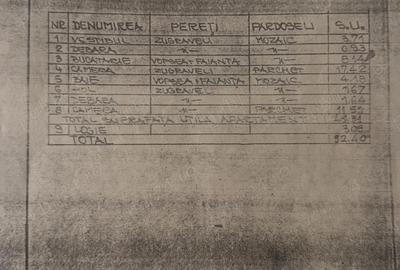 NR DENUMIREA PEREȚI PARDOSELI S.U.
1 VESTIBUL ZUGRAVELI MOZAIC 3.71
2 DEBARA —〃— —〃— 0.93
3 BUCATARIE VOPSEA+FAIANTA —〃— 8.14
4 CAMERA ZUGRAVELI PARCHET 17.42
5 BAIE VOPSEA+FAIANTA MOZAIC 4.18
6 HOL ZUGRAVELI —〃— 1.67
7 DEBARA —〃— —〃—
8 CAMERA —〃— PARCHET
TOTAL SUPRAFATA UTILA APARTAMENT
9 LOGIE 3.09
TOTAL 52.40